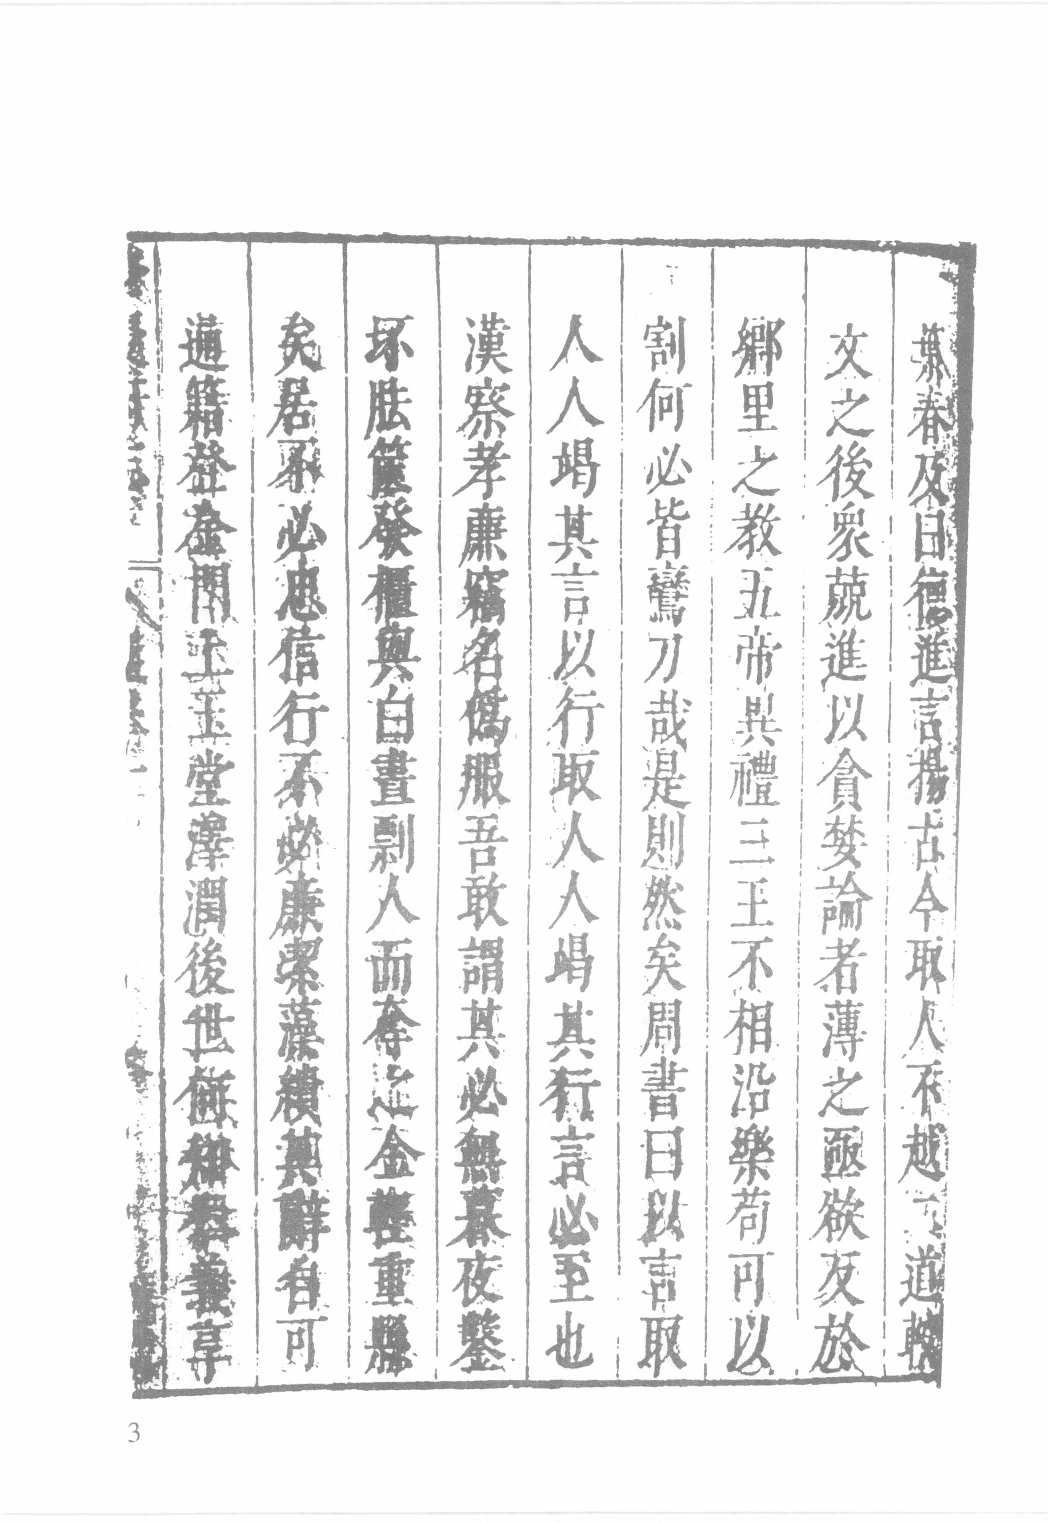 葉春及曰德進言揚古今取人不越二道輓
文之後衆兢進以貪婪論者薄之亟欲反於
鄉里之教五帝異禮三王不相沿樂苟可以
割何必皆鸞刀哉是則然矣問書曰以言取
人人竭其言以行取人人竭其行言必至也
漢察孝廉竊名僞服吾敢謂其必無暮夜鑿
坏胠篋發櫃與白晝剽人而奪之金輕重縣
矣居不必忠信行不必廉潔藻繢其辭自可
通籍登金閨上玉堂澤潤後世俯仰義享
3